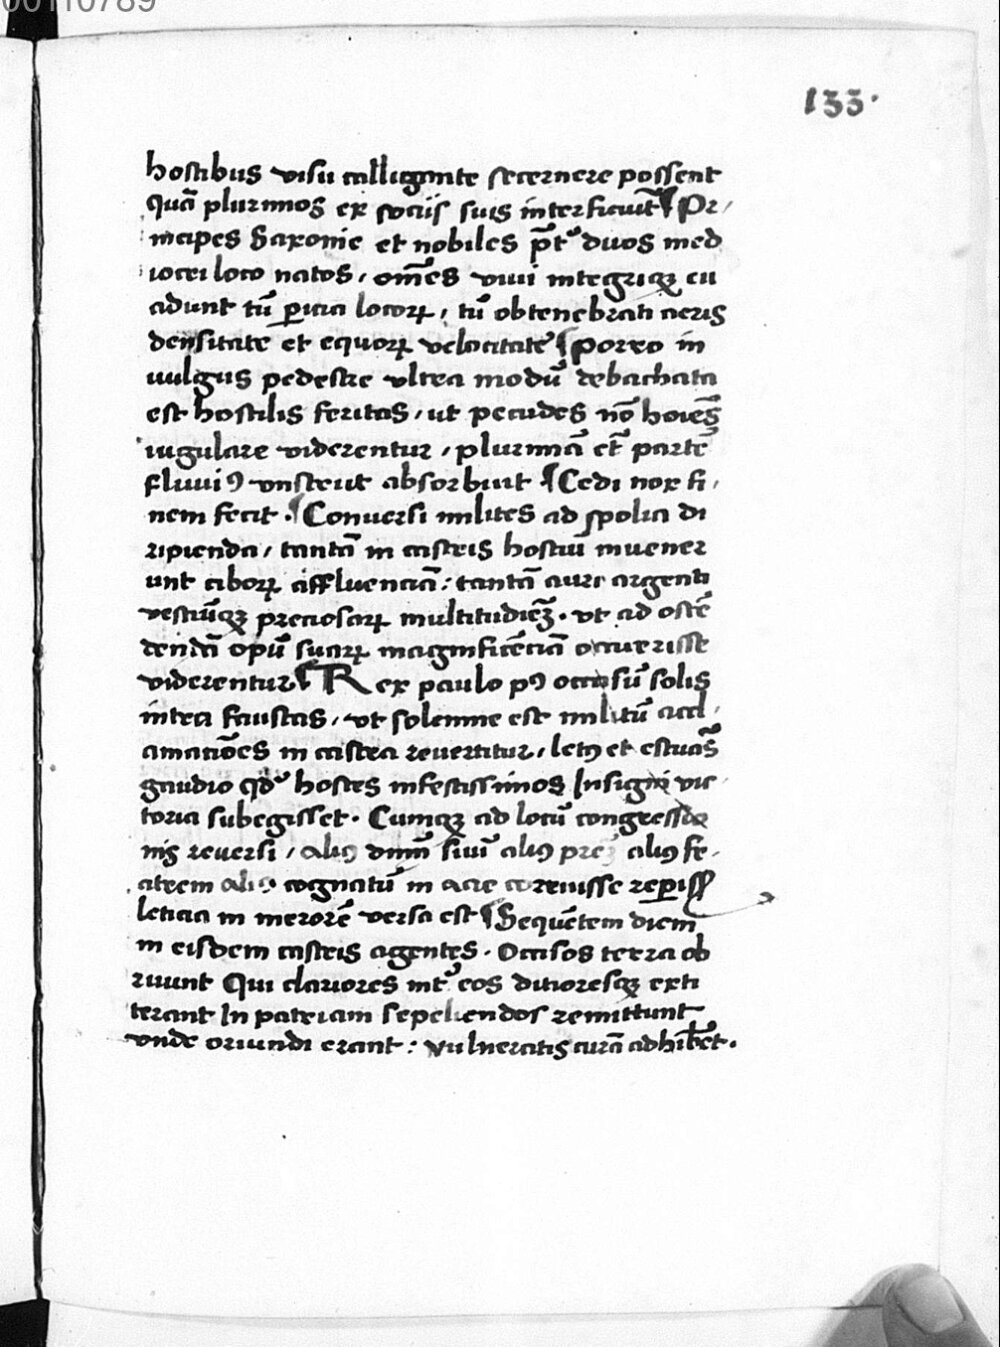 00110789
133.
hostibus visu calligante secernere possent
quā plurimos ex sociis suis interficiūt ¶ Pr/
incipes Saxonie et nobiles p̄t᷒ duos med
iocri loco natos, om̄es viui integriqꝫ eu
adunt tū ꝑicia locoꝝ, tū obtenebrati aeris
densitate et equoꝝ velocitate ¶ Porro in
uulgus pedestre vltra modū debachata
est hostilis feritas, ut pecudes nō hoies̄
iugulare viderentur, plurimā et̄ partē
fluuiꝯ vnstrut absorbuit ¶ Cedi nox fi,
nem fecit. ¶ Conuersi milites ad spolia di
ripienda, tantā in castris hostiū inuener
unt ciboꝝ affluenciā: tantā auri argenti
vestiūqꝫ preciosaꝝ multitudiēꝫ. vt ad ostē
dendā opū suaꝝ magnificēciā occurrisse
viderentur ¶ Rex paulo pꝯ occasū solis
intra faustas, vt solemne est militū accl,
amatiōes in castra reuertitur, letꝯ et estuās
gaudio qd᷒ hostes infestissimos Insigni vic
toria subegisset. Cumqꝫ ad locū congressio
nis reuersi, aliꝯ dnm̄ suū aliꝯ pre aliꝯ fr.
atrem aliꝯ cognatū in acie corruisse reꝑiss
leticia in merorē versa est ¶ Sequētem diem
in eisdem castris agentes. Occisos terra ob
ruunt Qui clariores int᷒ eos ditioresqꝫ exti
terant In patriam sepeliendos remittunt
vnde oriundi erant: vulneratis curā adhibēt.